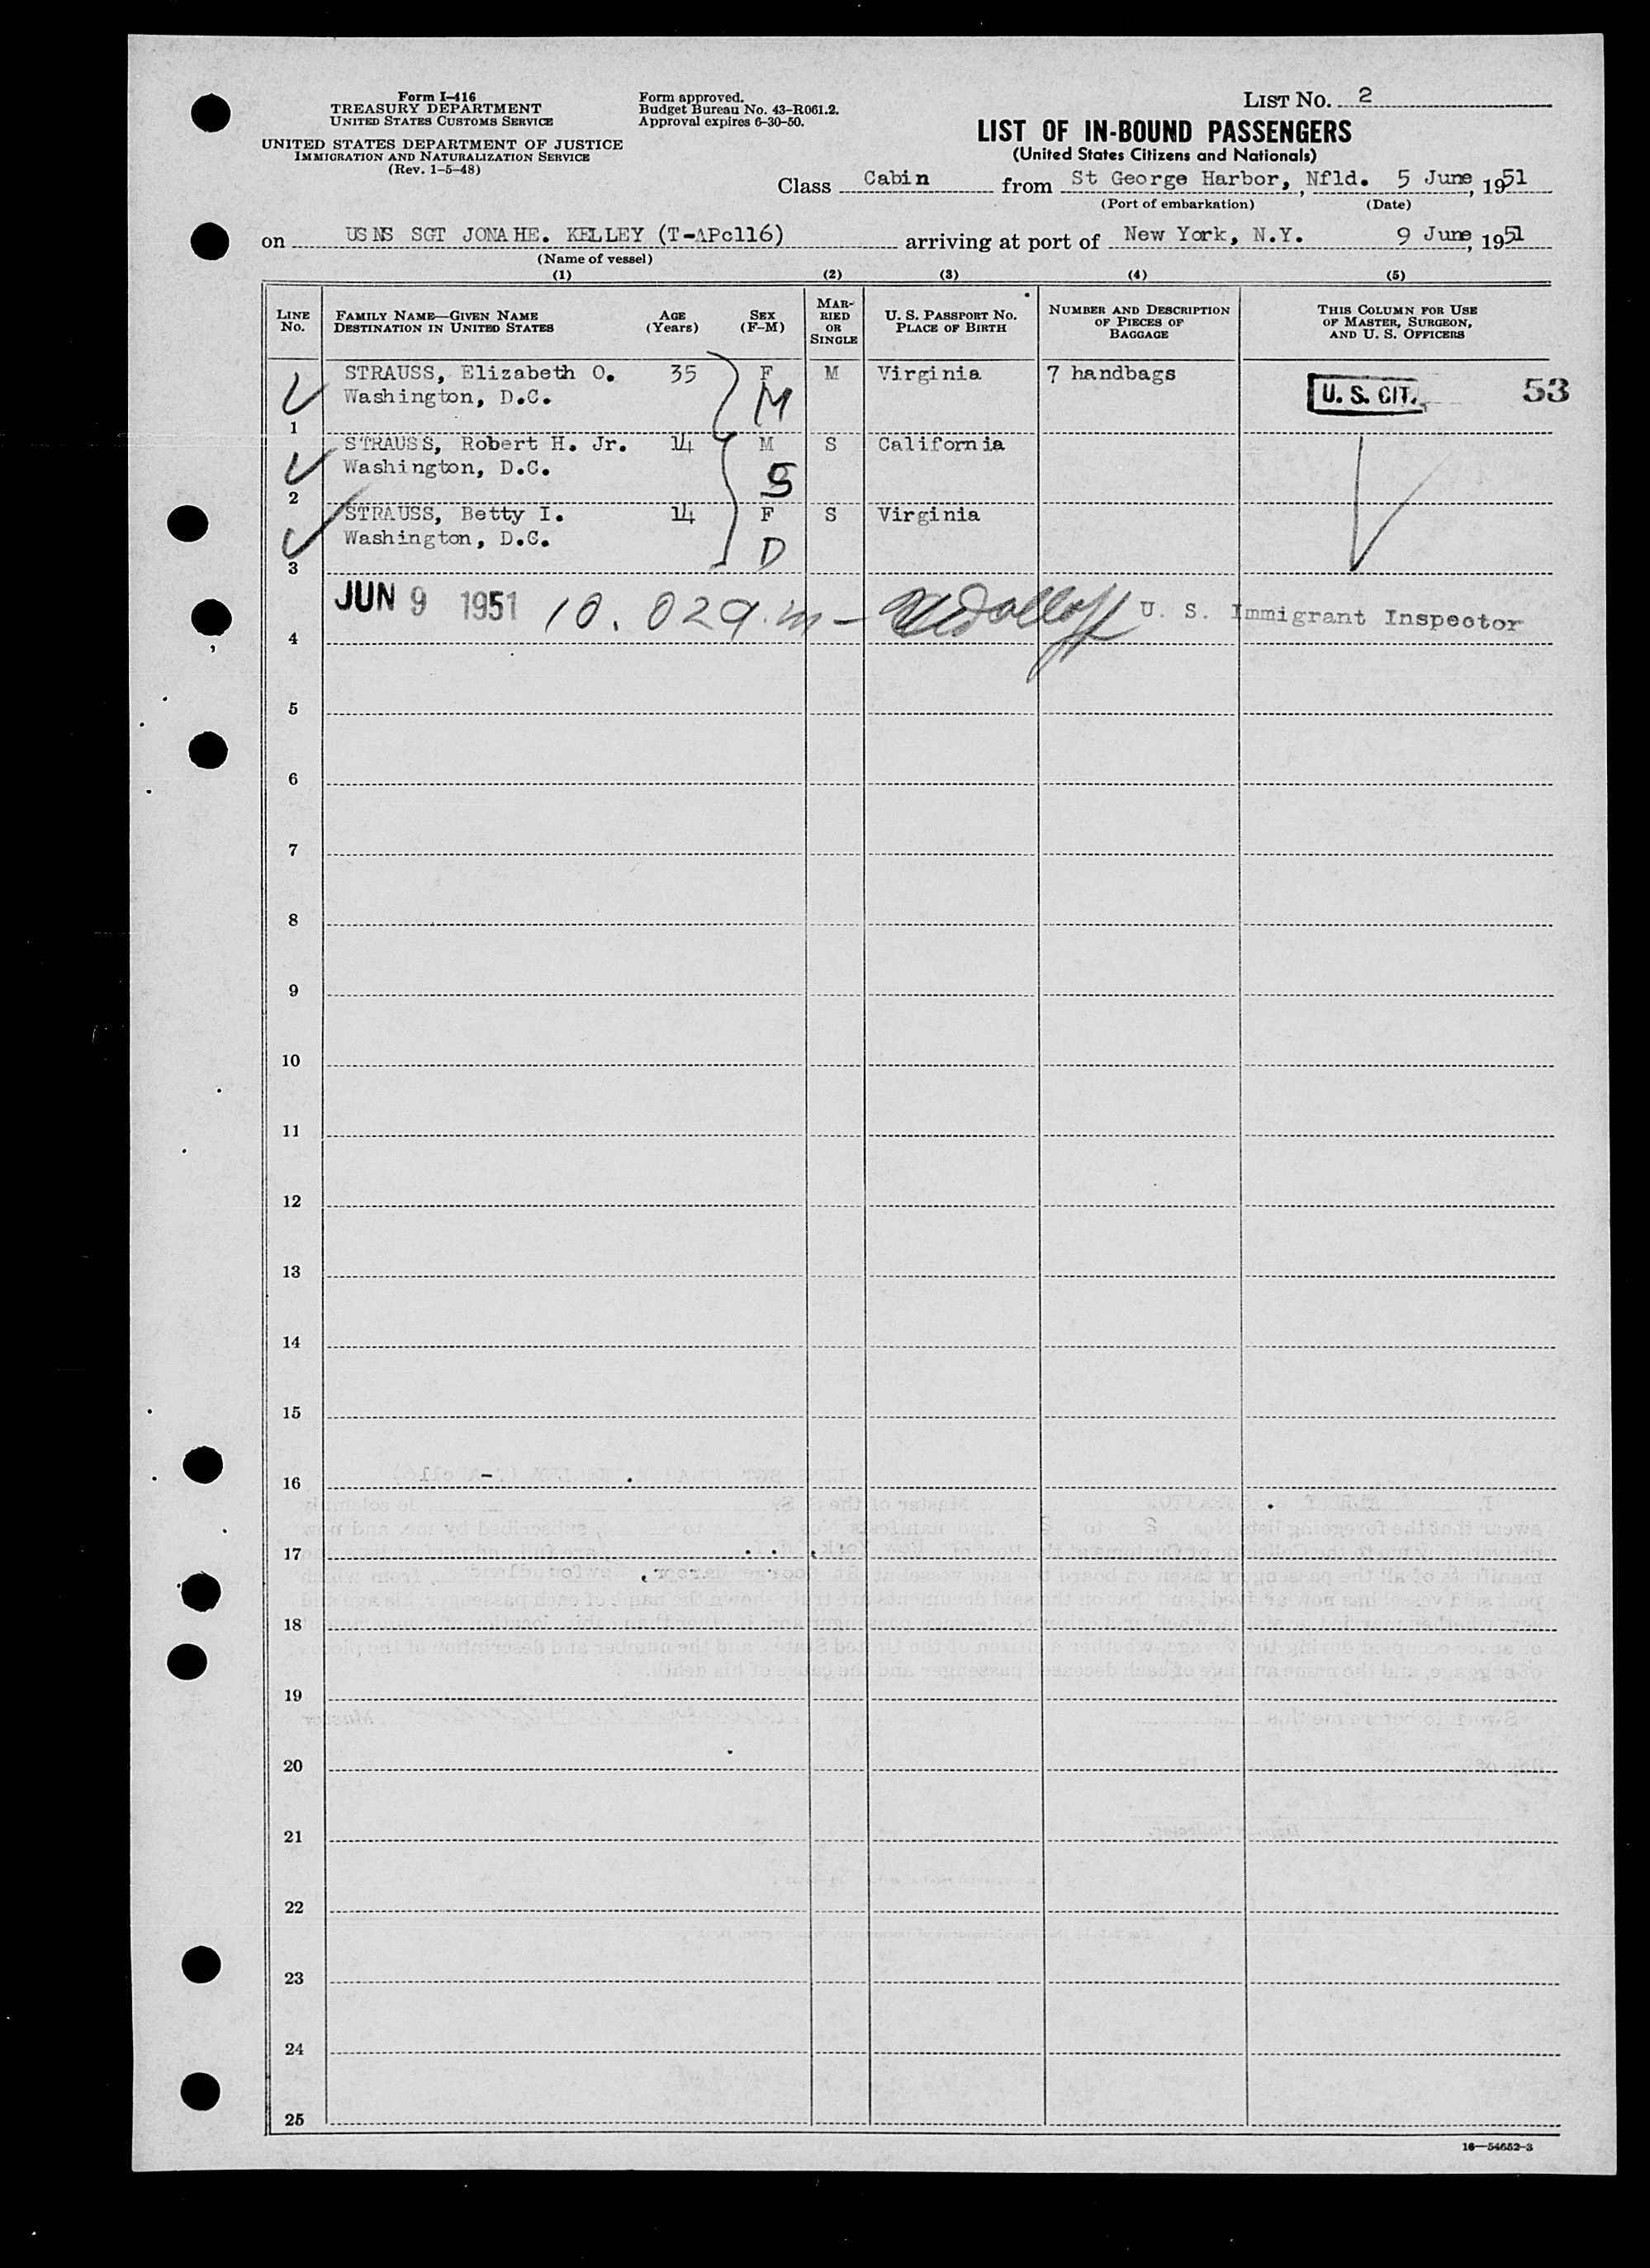 Form I-416
TREASURY DEPARTMENT
UNITED STATES CUSTOMS SERVICE
UNITED STATES DEPARTMENT OF JUSTICE
IMMIGRATION AND NATURALIZATION SERVICE
(Rev. 1-5-48)
Form approved.
Budget Bureau No. 43-R061.2.
Approval expires 6-30-50.
LIST NO. 2
LIST OF IN-BOUND PASSENGERS
(United States Citizens and Nationals)
Class Cabin from St George Harbor, Nfld. 5 June, 1951
(Port of embarkation) (Date)
on USNS SGT JONAH E. KELLEY (T-APc116) arriving at port of New York, N.Y. 9 June, 1951
(Name of vessel)
(1) (2) (3) (4) (5)
LINE NO.
FAMILY NAME—GIVEN NAME
DESTINATION IN UNITED STATES
AGE (Years)
SEX (F-M)
MARRIED OR SINGLE
U. S. PASSPORT NO.
PLACE OF BIRTH
NUMBER AND DESCRIPTION OF PIECES OF BAGGAGE
THIS COLUMN FOR USE OF MASTER, SURGEON, AND U. S. OFFICERS
STRAUSS, Elizabeth O. 35 F M Virginia 7 handbags
Washington, D.C. M U. S. CIT. 53
1
STRAUSS, Robert H. Jr. 14 M S California
Washington, D.C. S
2
STRAUSS, Betty I. 14 F S Virginia
Washington, D.C. D
3
JUN 9 1951 10.02 a.m — U. S. Immigrant Inspector
4
5
6
7
8
9
10
11
12
13
14
15
16
17
18
19
20
21
22
23
24
25
16—54652-3